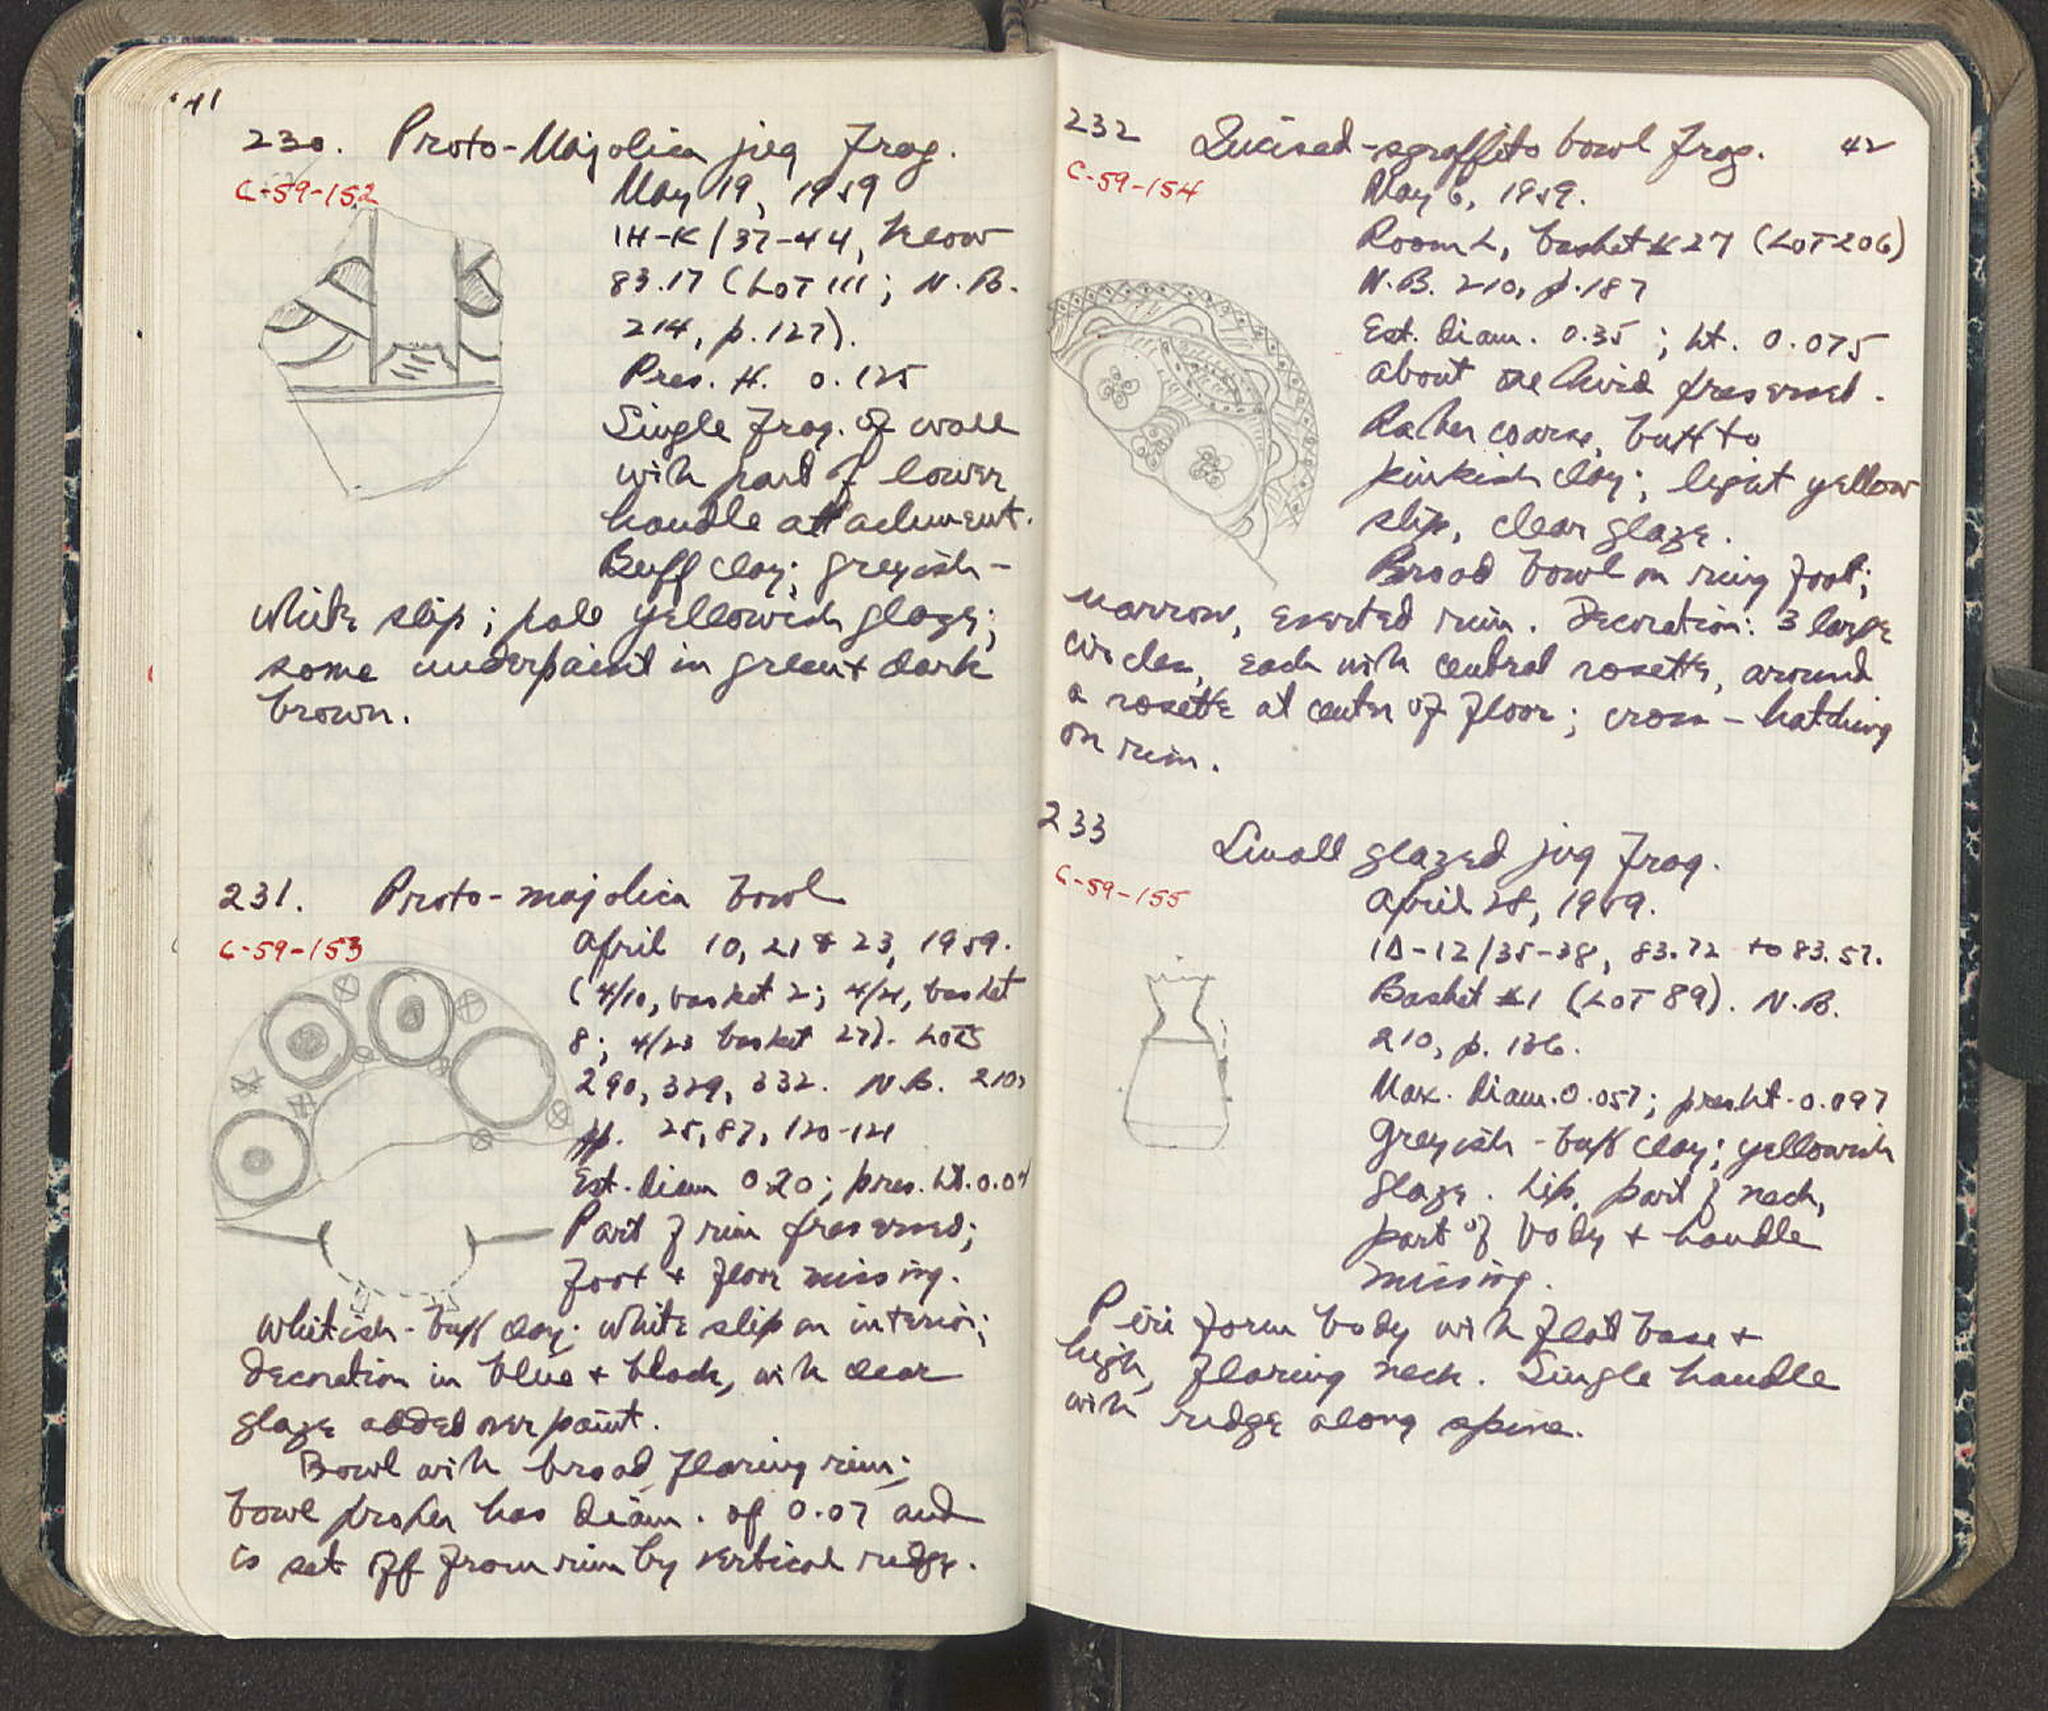 41
230. Proto-Majolica jug frag.
C-59-152
May 19, 1959
1H-K/37-44, below
83.17 (LOT 111; N.B.
214, p. 127).
Pres. H. 0.125
Single frag. of wall
with part of lower
handle attachment.
Buff clay; greyish-
white slip; pale yellowish glaze;
some underpaint in green + dark
brown.
231. Proto-majolica bowl
C-59-153
April 10, 21 & 23, 1959.
(4/10, basket 2; 4/21, basket
8; 4/23 basket 27). LOTS
290, 329, 332. N.B. 210,
pp. 25, 87, 120-121
Est. diam 0.20; pres. ht. 0.04
Part of rim preserved;
foot + floor missing.
Whitish-buff clay; white slip on interior;
decoration in blue + black, with clear
glaze added over paint.
Bowl with broad flaring rim;
bowl proper has diam. of 0.07 and
is set off from rim by vertical ridge.
42
232 Incised-sgraffito bowl frag.
C-59-154
May 6, 1959.
Room L, basket #27 (LOT 206)
N.B. 210, p. 187
Est. diam. 0.35; ht. 0.075
about one third preserved.
Rather coarse, buff to
pinkish clay; light yellow
slip, clear glaze.
Broad bowl on ring foot;
narrow, everted rim. Decoration: 3 large
circles, each with central rosette, around
a rosette at center of floor; cross-hatching
on rim.
233 Small glazed jug frag.
C-59-155
April 28, 1959.
1D-12/35-38, 83.72 to 83.57.
Basket #1 (LOT 89). N.B.
210, p. 136.
Max. diam. 0.057; pres. ht. 0.097
Greyish-buff clay; yellowish
glaze. Lip, part of neck,
part of body + handle
missing.
Piriform body with flat base +
high, flaring neck. Single handle
with ridge along spine.